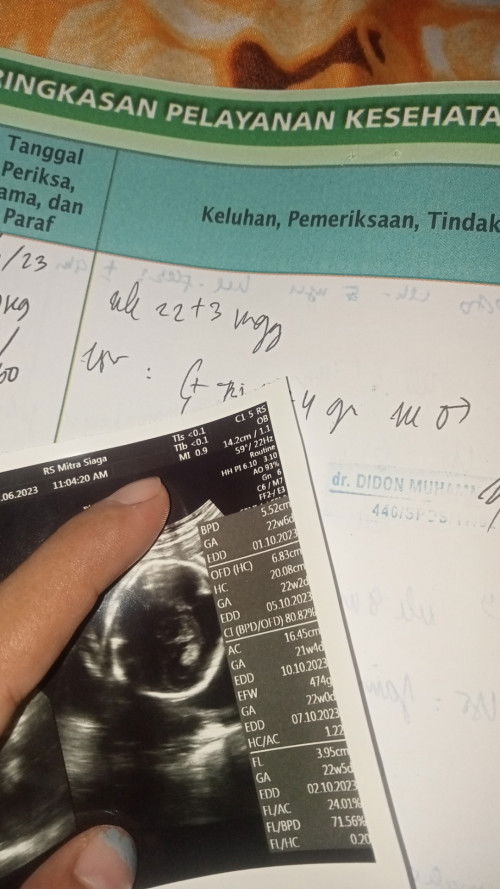 RINGKASAN PELAYANAN KESEHATA
Tanggal
Periksa,
ama, dan
Paraf
Keluhan, Pemeriksaan, Tindak
/23
uk 22+3 mgg
RS Mitra Siaga
.06.2023 11:04:20 AM
TIs <0.1
TIb <0.1
MI 0.9
C1 5 RS
OB
14.2cm / 1.1
59°/ 22Hz
Routine
HH PI 6.10 3.10
AO 93%
Gn 6
C6 / M7
FF2 / E3
dr. DIDON MUHAMM
BPD 5.52cm
GA 22w6d
EDD 01.10.2023
OFD (HC) 6.83cm
HC 20.08cm
GA 22w2d
EDD 05.10.2023
CI (BPD/OFD) 80.82%
AC 16.45cm
GA 21w4d
EDD 10.10.2023
EFW 474g
GA 22w0d
EDD 07.10.2023
HC/AC 1.22
FL 3.95cm
GA 22w5d
EDD 02.10.2023
FL/AC 24.01%
FL/BPD 71.56%
FL/HC 0.20